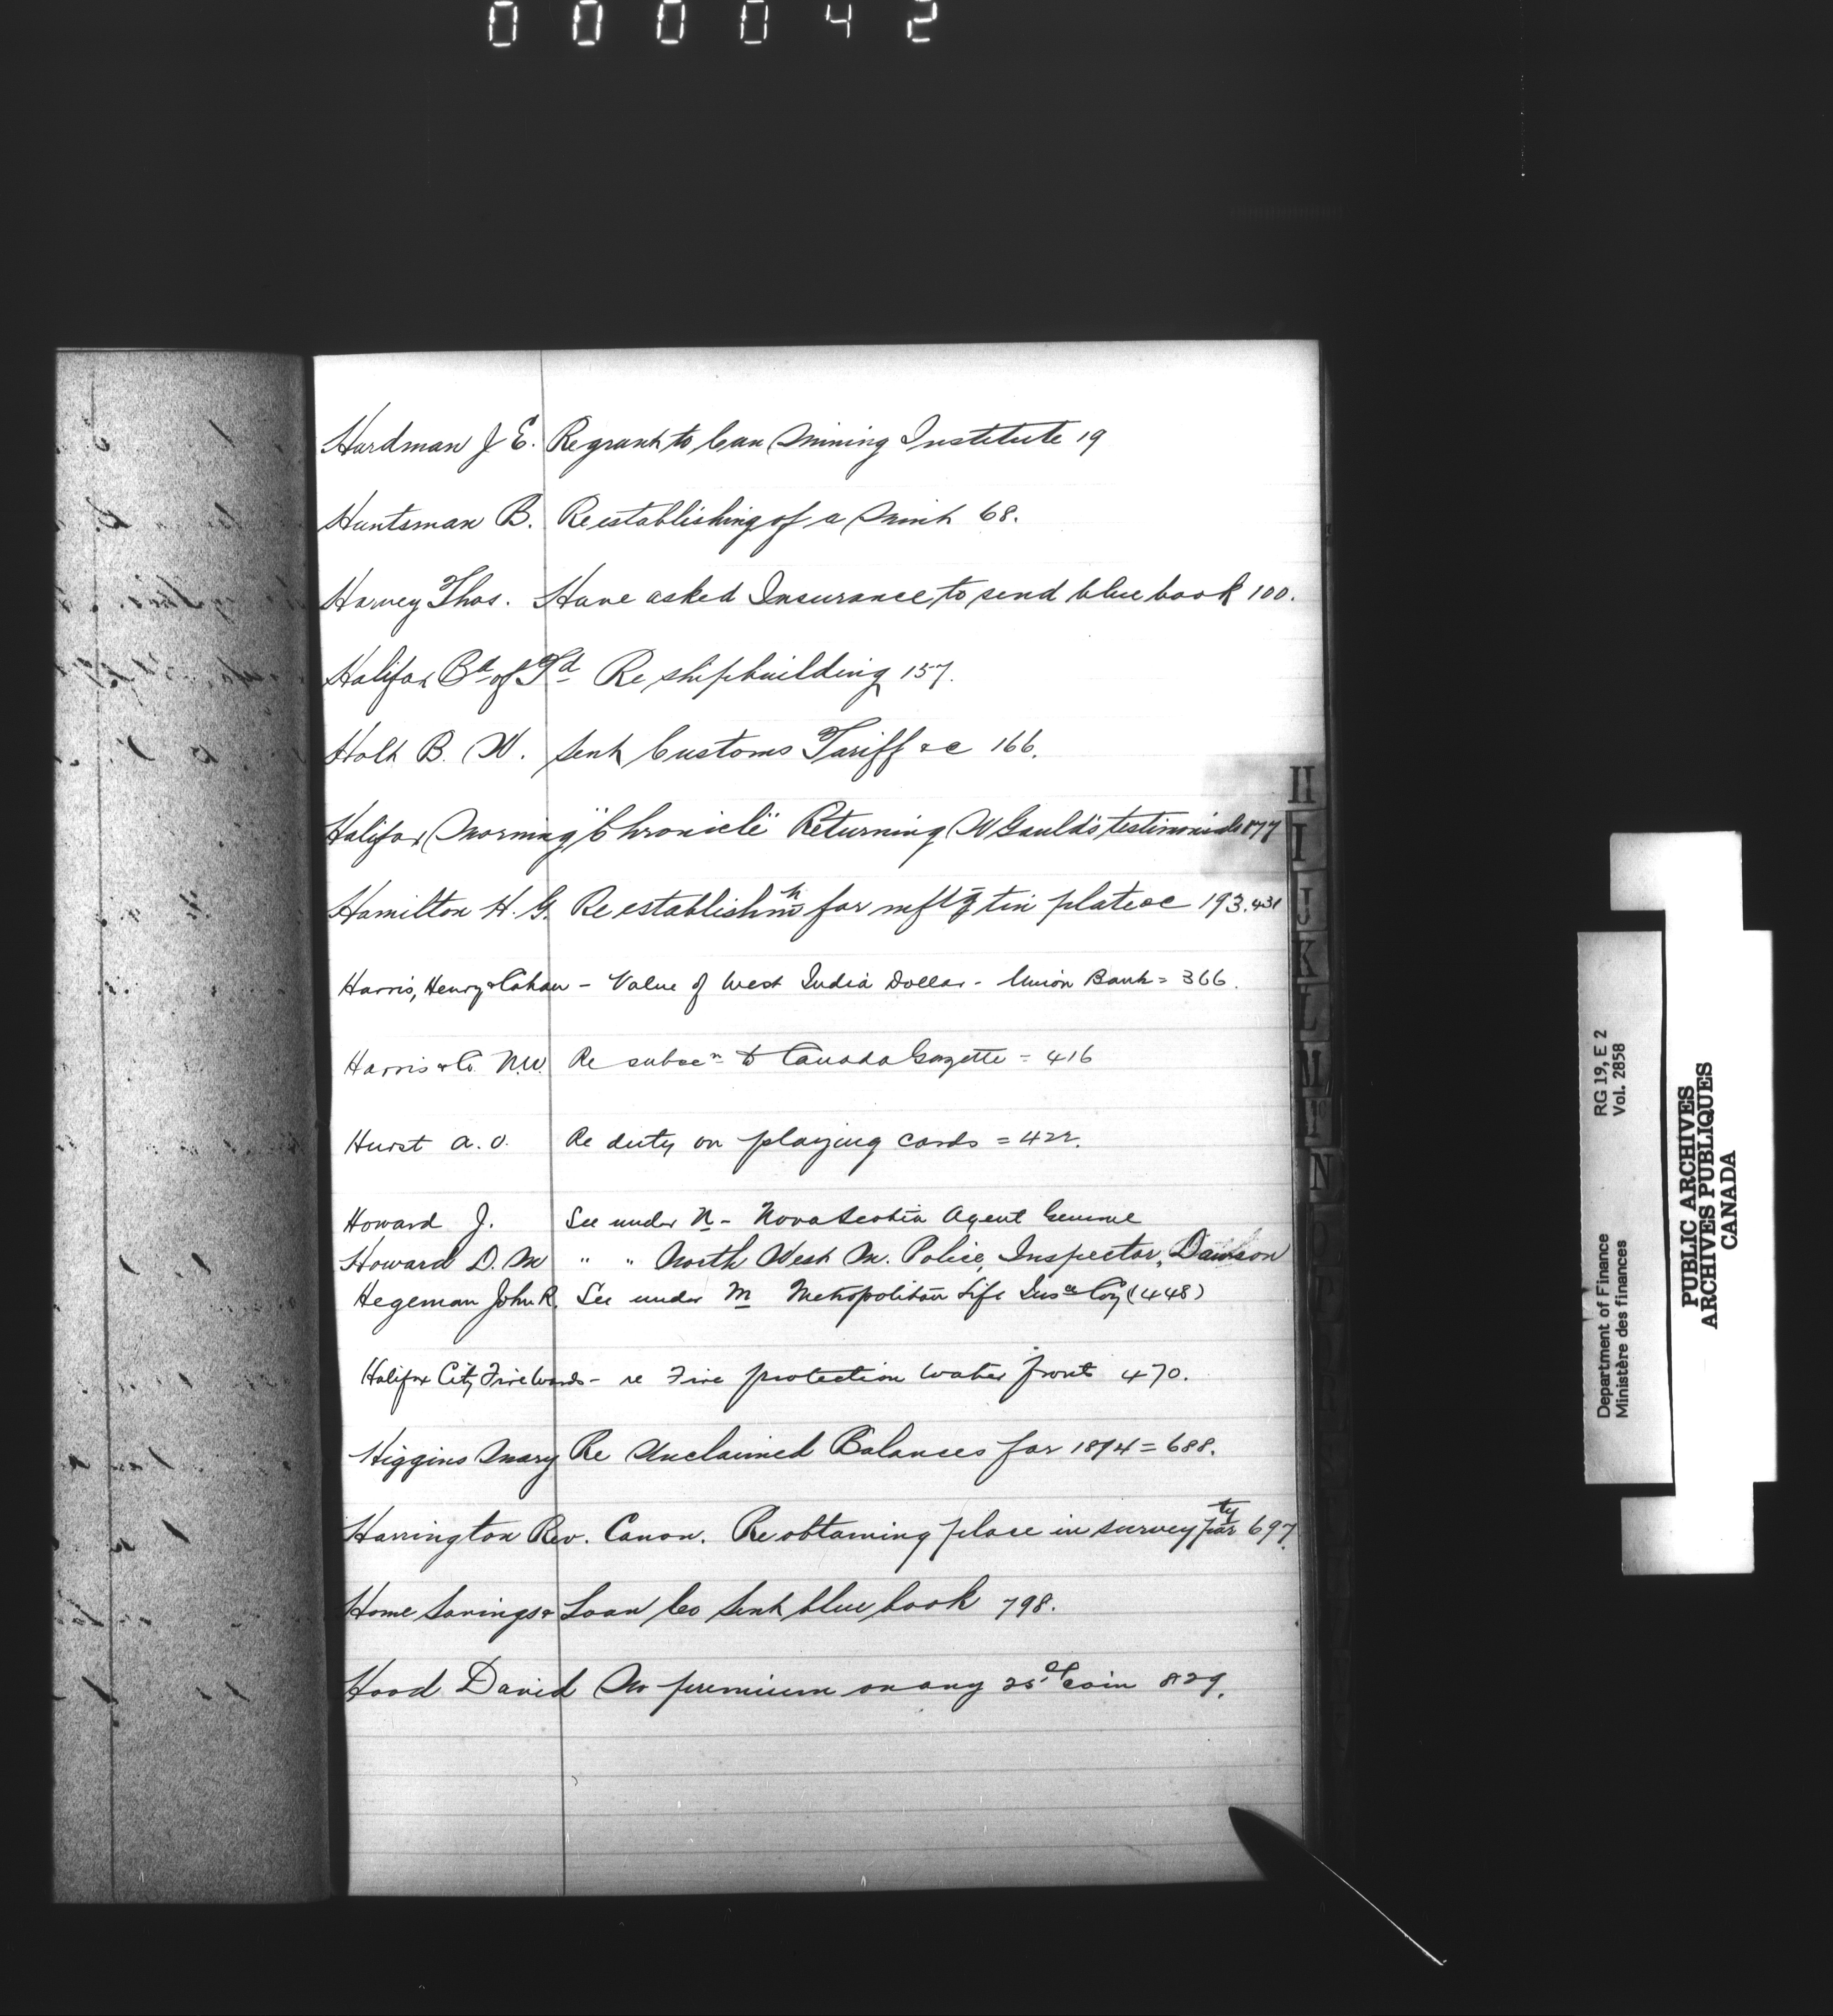 000042
Hardman J E. Re grant to Can Mining Institute 19
Huntsman B. Re establishing of a Mint 68.
Harvey Thos. Have asked Insurance to send blue book 100.
Halifax Bd of Td Re shipbuilding 157.
Holt B. W. Sent Customs Tariff &c 166.
Halifax Morning "Chronicle" Returning W Gauld's testimonials 177
Hamilton H. G. Re establishmt for mftg tin plate &c 193.431
Harris, Henry & Cahan - Value of West India Dollar - Union Bank = 366.
Harris & Co. N.W. Re subscn to Canada Gazette = 416
Hurst A. O. Re duty on playing cards = 422.
Howard J. See under N - Nova Scotia Agent General
Howard D. M " " North West M. Police, Inspector, Dawson
Hegeman John R. See under M Metropolitan Life Insce Coy (448)
Halifax City Fire Wards - re Fire protection water front 470.
Higgins Mary Re Unclaimed Balances for 1894 = 688.
Harrington Rev. Canon. Re obtaining place in survey party 697.
Home Savings & Loan Co Sent blue book 798.
Hood David No premium on any 25c coin 829.
H
I
J
K
L
M
Mc
N
RG 19, E 2
Vol. 2858
Department of Finance
Ministère des finances
PUBLIC ARCHIVES
ARCHIVES PUBLIQUES
CANADA